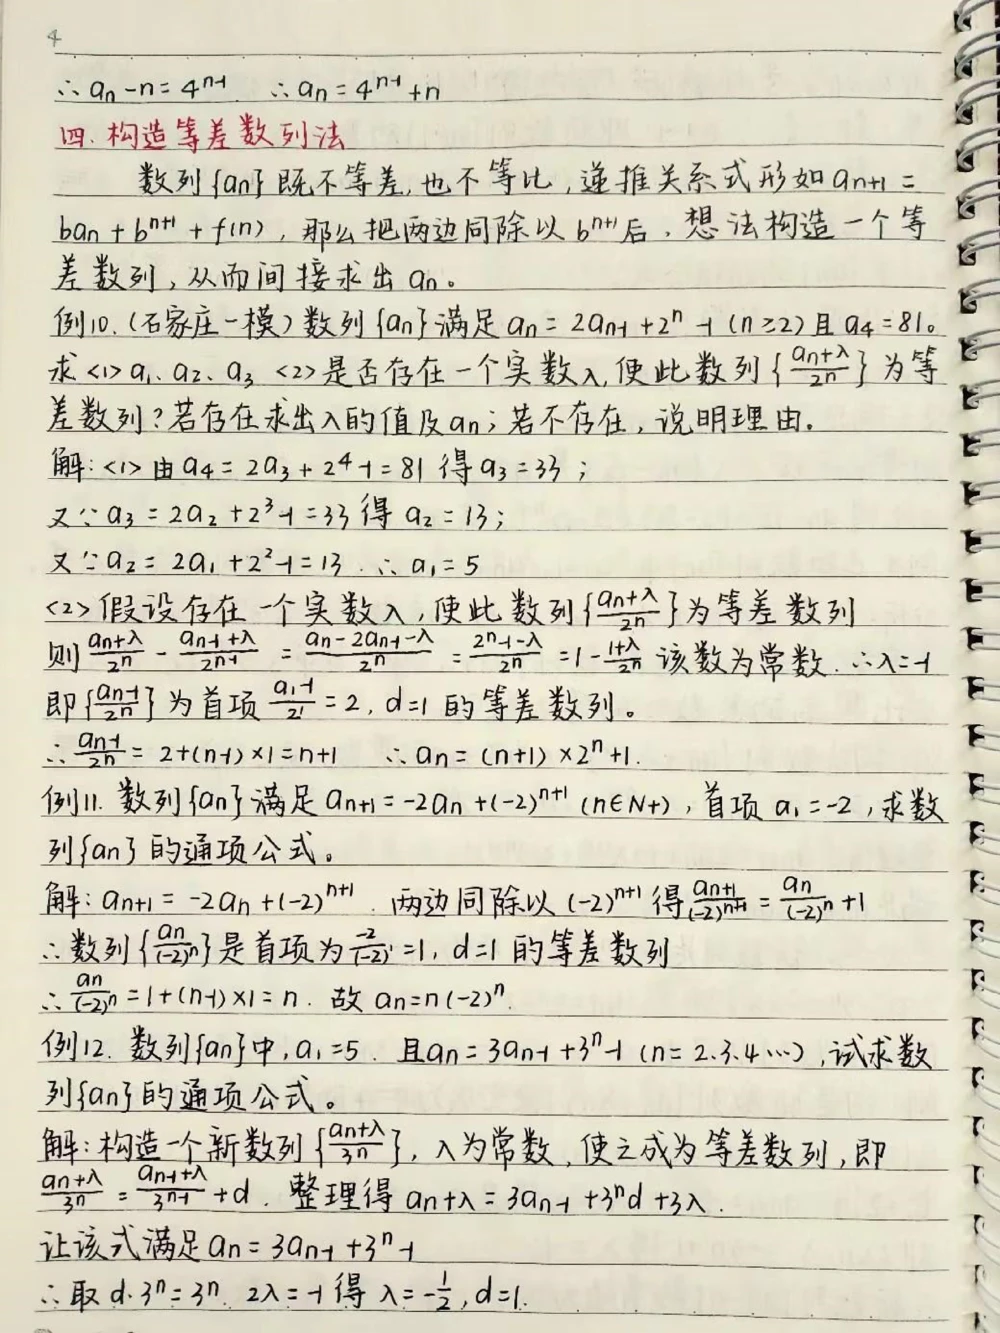 4
∴ an-n=4^{n-1} ∴ an=4^{n-1}+n
四. 构造等差数列法
数列{an}既不等差,也不等比,递推关系式形如an+1=
ban+b^{n+1}+f(n), 那么把两边同除以b^{n+1}后, 想法构造一个等
差数列, 从而间接求出an。
例10.(石家庄一模)数列{an}满足an=2an-1+2^n-1(n≥2)且a4=81。
求<1>a1、a2、a3 <2>是否存在一个实数λ,使此数列{\frac{an+λ}{2^n}}为等
差数列?若存在求出λ的值及an;若不存在,说明理由.
解:<1>由a4=2a3+2^4-1=81得a3=33;
又∵a3=2a2+2^3-1=33得a2=13;
又∵a2=2a1+2^2-1=13.∴a1=5
<2>假设存在一个实数λ,使此数列{\frac{an+λ}{2^n}}为等差数列
则\frac{an+λ}{2^n}-\frac{an-1+λ}{2^{n-1}}=\frac{an-2an-1-λ}{2^n}=\frac{2^n-1-λ}{2^n}=1-\frac{1+λ}{2^n}该数为常数.∴λ=-1
即{\frac{an-1}{2^n}}为首项\frac{a1-1}{2^1}=2, d=1的等差数列。
∴\frac{an-1}{2^n}=2+(n-1)×1=n+1 ∴an=(n+1)×2^n+1.
例11. 数列{an}满足an+1=-2an+(-2)^{n+1}(n∈N+),首项a1=-2,求数
列{an}的通项公式。
解:an+1=-2an+(-2)^{n+1}. 两边同除以(-2)^{n+1}得\frac{an+1}{(-2)^{n+1}}=\frac{an}{(-2)^n}+1
∴数列{\frac{an}{(-2)^n}}是首项为\frac{-2}{(-2)^1}=1, d=1的等差数列
∴\frac{an}{(-2)^n}=1+(n-1)×1=n. 故an=n(-2)^n.
例12. 数列{an}中,a1=5. 且an=3an-1+3^n-1(n=2.3.4…),试求数
列{an}的通项公式。
解:构造一个新数列{\frac{an+λ}{3^n}}, λ为常数,使之成为等差数列,即
\frac{an+λ}{3^n}=\frac{an-1+λ}{3^{n-1}}+d. 整理得an+λ=3an-1+3^nd+3λ.
让该式满足an=3an-1+3^n-1
∴取d·3^n=3^n. 2λ=-1得λ=-\frac{1}{2},d=1.